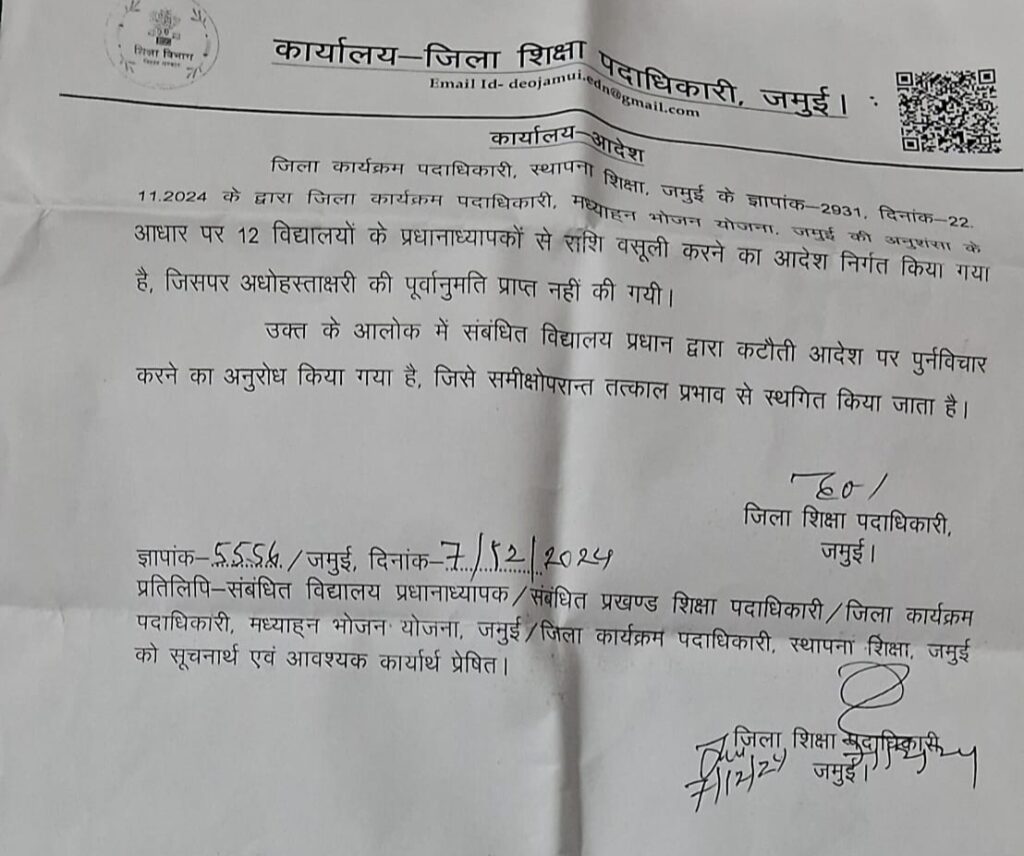 शिक्षा विभाग
बिहार सरकार
कार्यालय–जिला शिक्षा पदाधिकारी, जमुई।
Email Id- deojamui.edn@gmail.com
कार्यालय–आदेश
जिला कार्यक्रम पदाधिकारी, स्थापना शिक्षा, जमुई के ज्ञापांक–2931, दिनांक–22.
11.2024 के द्वारा जिला कार्यक्रम पदाधिकारी, मध्याह्न भोजन योजना, जमुई की अनुशंसा के
आधार पर 12 विद्यालयों के प्रधानाध्यापकों से राशि वसूली करने का आदेश निर्गत किया गया
है, जिसपर अधोहस्ताक्षरी की पूर्वानुमति प्राप्त नहीं की गयी।
उक्त के आलोक में संबंधित विद्यालय प्रधान द्वारा कटौती आदेश पर पुर्नविचार
करने का अनुरोध किया गया है, जिसे समीक्षोपरान्त तत्काल प्रभाव से स्थगित किया जाता है।
ह०/
जिला शिक्षा पदाधिकारी,
जमुई।
ज्ञापांक–5556/जमुई, दिनांक–7/12/2024
प्रतिलिपि–संबंधित विद्यालय प्रधानाध्यापक/संबंधित प्रखण्ड शिक्षा पदाधिकारी/जिला कार्यक्रम
पदाधिकारी, मध्याह्न भोजन योजना, जमुई/जिला कार्यक्रम पदाधिकारी, स्थापना शिक्षा, जमुई
को सूचनार्थ एवं आवश्यक कार्यार्थ प्रेषित।
जिला शिक्षा पदाधिकारी
जमुई।
7/12/24